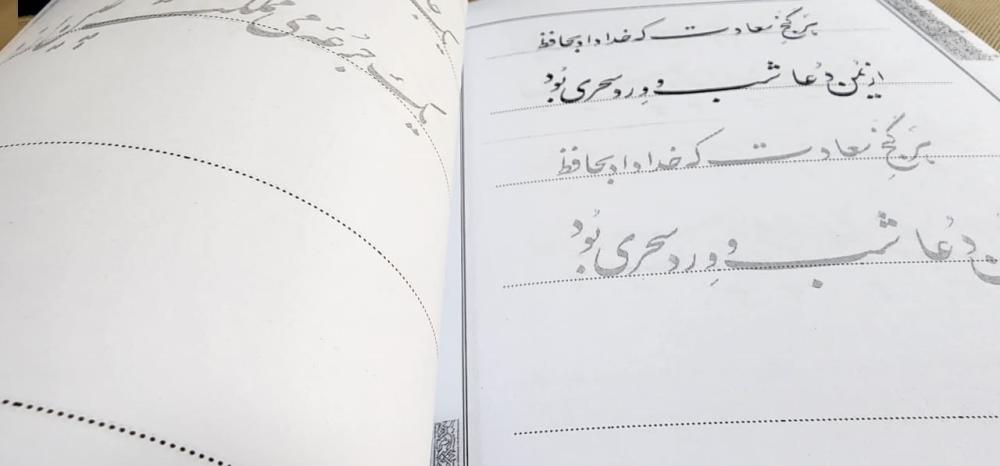 هر گنج سعادت که خدا داد بحافظ
از یمن دعا شب و ورد سحری بود
هر گنج سعادت که خدا داد بحافظ
ن دعا شب و ورد سحری بود
یک جرعه می ملکت
یک